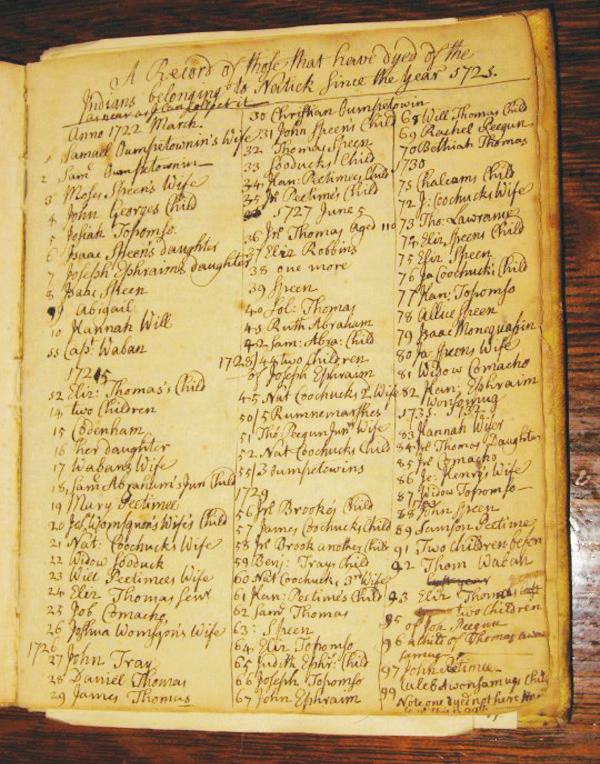 A Record of those that have dyed of the
Indians belonging to Natick Since the Year 1721.
as near as I can collect it
Anno 1722 March.
1 Samuell Oumpetownin's Wife
2 Sam: Oumpetownin
3 Moses Speen's Wife
4 John Georges Child
5 Josiah Topomso.
6 Isaac Speen's daughter
7 Joseph Ephraim's daughter
8 Isaac Speen
9 Abigail
10 Hannah Will
11 Capt. Waban
1725
12 Eliz: Thomas's Child
14 two Children
15 Codenham
16 her daughter
17 Waban's Wife
18 Sam: Abraham's Jun: Child
19 Mary Peetimee
20 Womsquon's Wife's Child
21 Nat: Coochucks Wife
22 Widow Sooduck
23 Will Peetimees Wife
24 Eliz Thomas Senr
25 Job Comacho,
26 Joshua Womsquon's Wife
1726
27 John Tray
28 Daniel Thomas
29 James Thomas
30 Christian Oumpetowin
31 John Speen's Child
32 Thomas Speen
33 Sooducks Child
34 Han: Peetimees Child
35 Jos Peetime's Child
1727 June 5
36 Jos Thomas Aged 110
37 Eliz Robbins
38 one more
39 Speen
40 Sol: Thomas
41 Ruth Abraham
42 Sam: Abra: Child
1728 44 two Children
of Joseph Ephraim
45 Nat Coochucks 2 Wife
50 5 Rumnemarshes
51 Tho: Peegun Junr Wife
52 Nat Coochucks Child
55 3 Oumpetowins
1729
56 Jos Brooke's Child
57 James Coochucks Child
58 Jos Brook another Child
59 Benj: Trays Child
60 Nat Coochucks 3d Wife
61 Han: Peetime's Child
62 Sam: Thomas
63: Speen
64 Eliz Topomso
65 Judith Ephr: Child
66 Joseph Topomso
67 John Ephraim
68 Will Thomas Child
69 Rachel Peegun
70 Bethiah Thomas
1730
71 Chalcoms Child
72 J: Coochucks Wife
73 Tho: Lawrance
74 Eliz Speens Child
75 Eliz Speen
76 Ja Coochucks Child
77 Han: Topomso
78 Allice Speen
79 Isaac Monequasin
80 Ja: Speens Wife
81 Widow Comacho
82 Han: Ephraim
Wonsomug
1731. 1732
83 Hannah Wiser
84 Jos Thomas Daughter
85 Jos Comacho
86 Je: Henry's Wife
87 Widow Topomso
88 John Speen
89 Samson Peetime
91 Two Children
92 Thom Waban
93 Eliz Thomas
95 two Children
of Peegun
96 a Child of Thomas
97 John Petimee
99 Caleb Awonsamugs Child
Note one dyed not here